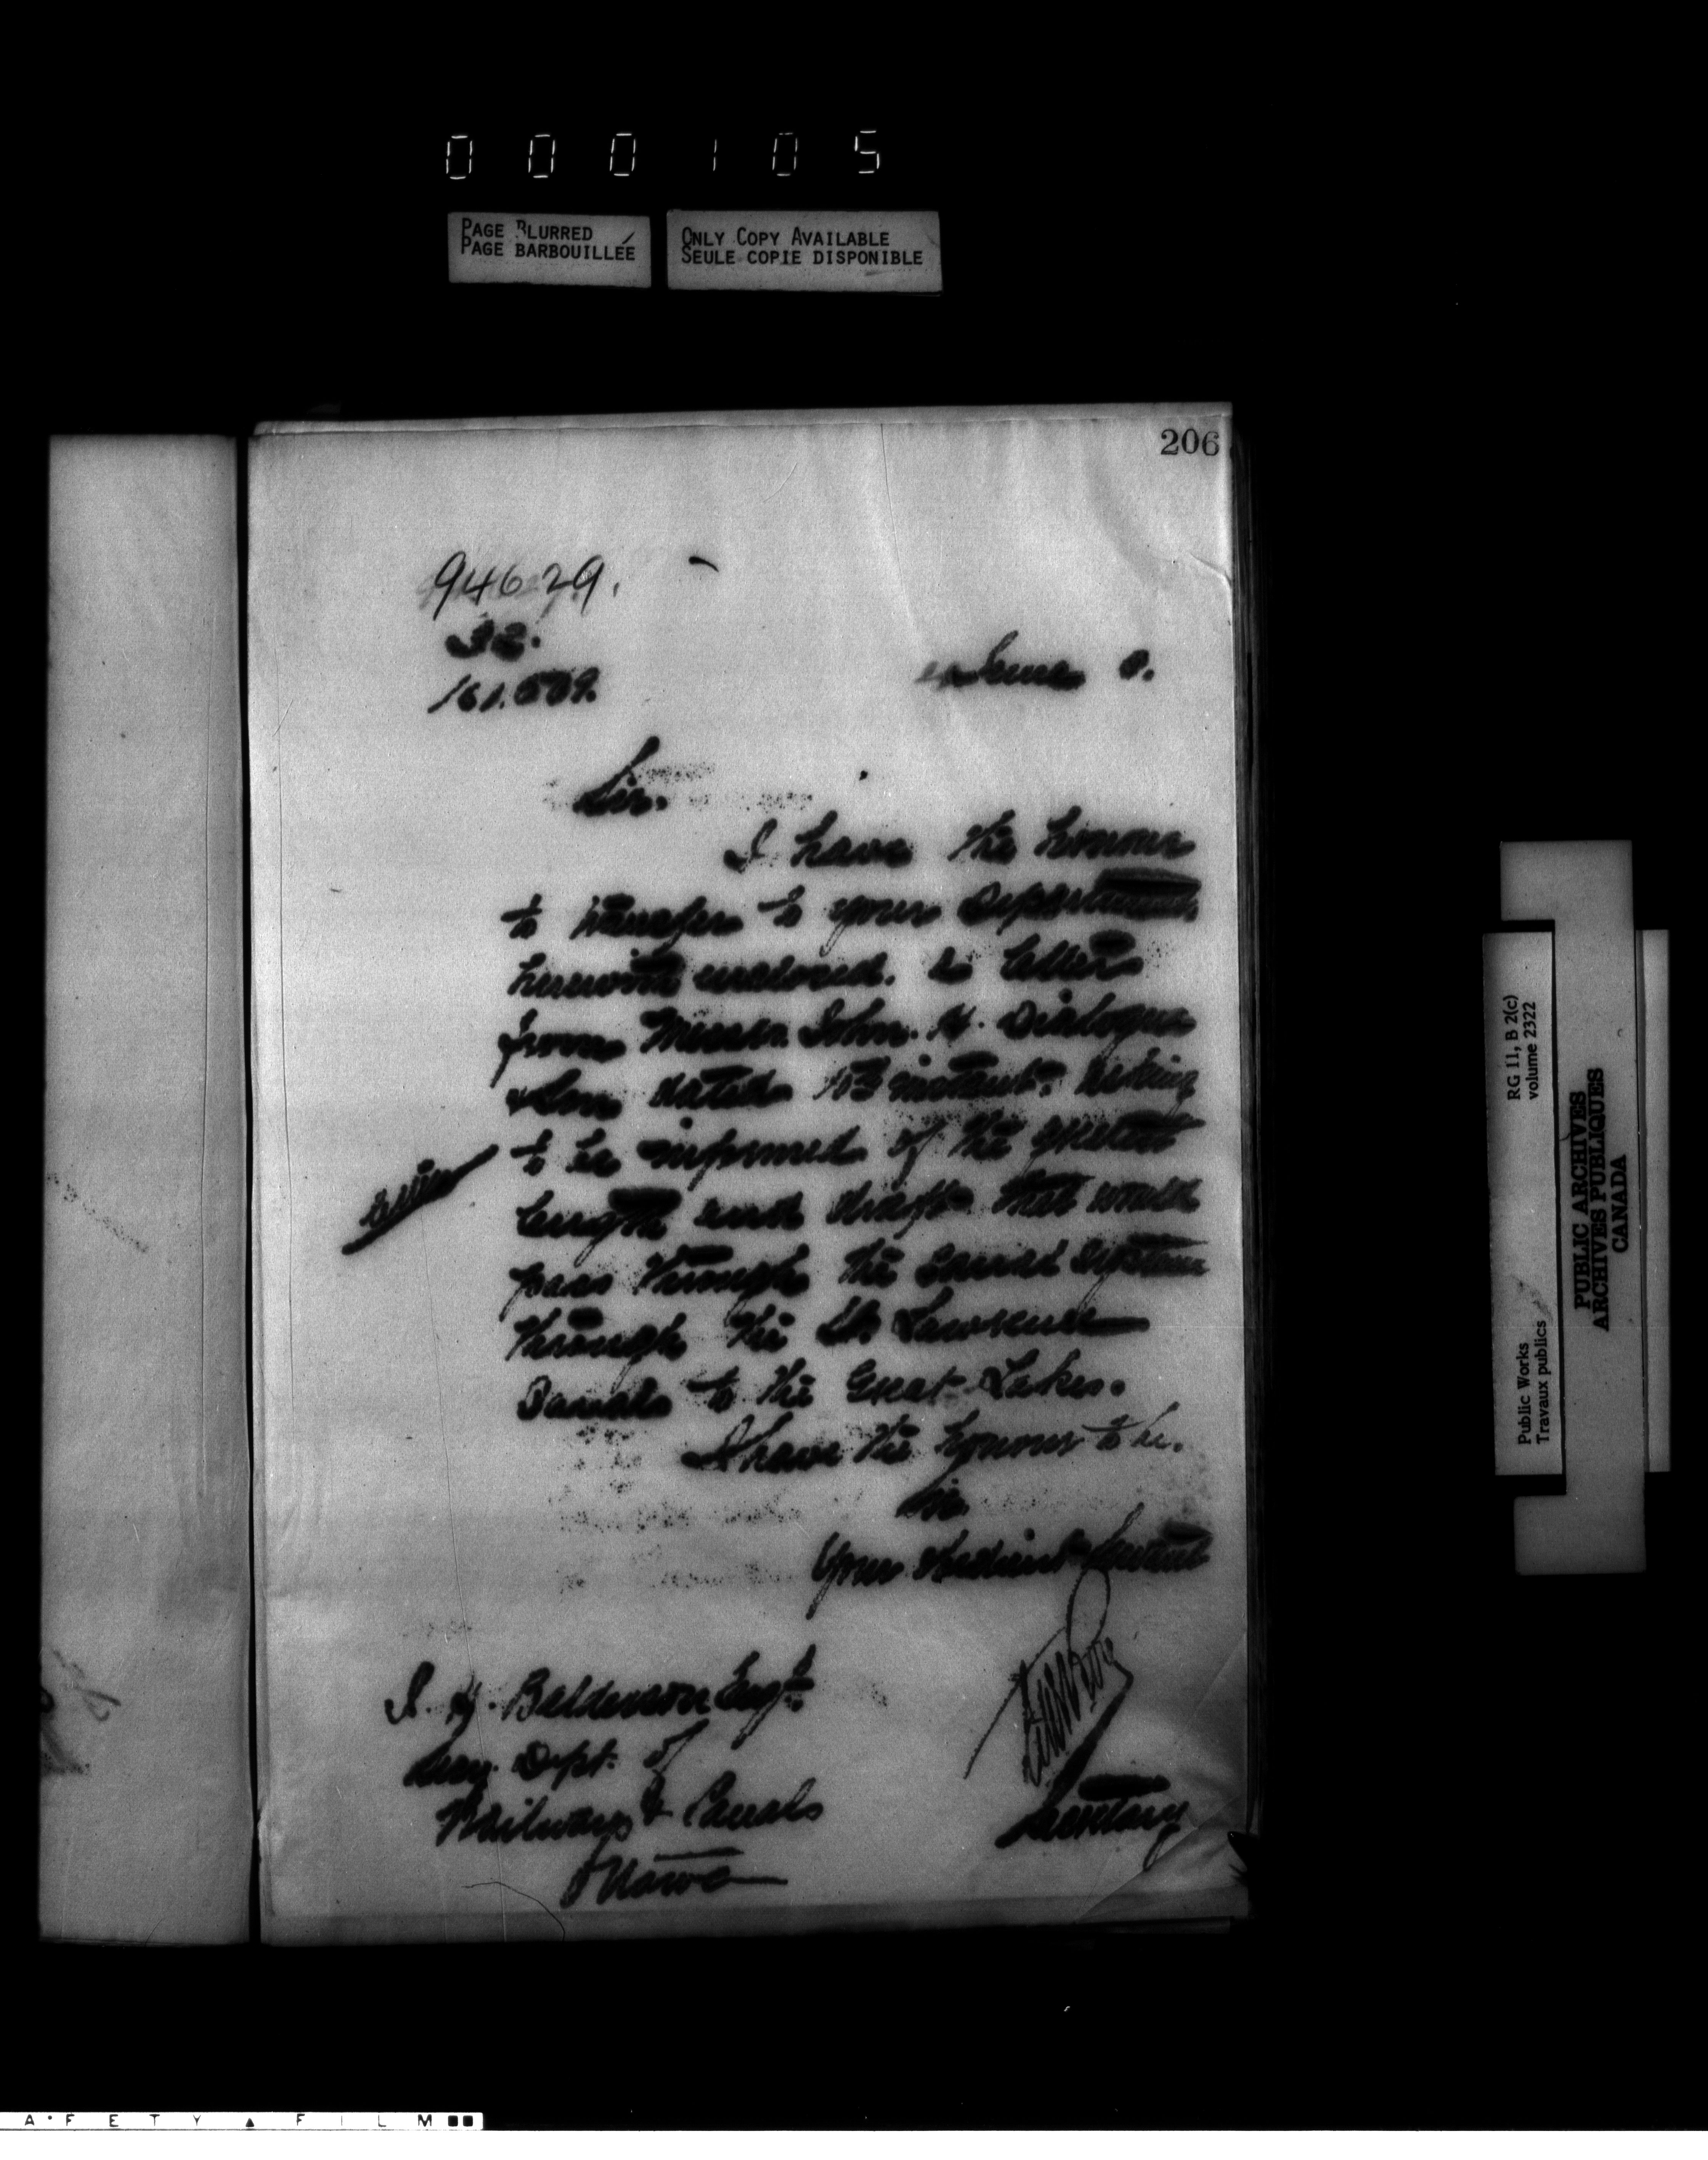 000105
PAGE BLURRED
PAGE BARBOUILLÉE
ONLY COPY AVAILABLE
SEULE COPIE DISPONIBLE
206
94629.
32.
161.559.
June
Sir.
I have the honour
to transfer to your Department
herewith enclosed. a letter
from Messrs. John. H. Dialogue
& Son dated instant. asking
to be informed of the greatest
length and draft that would
pass through the Canal System
through the St Lawrence
Canals to the Great Lakes.
I have the honour to be.
Sir
Your obedient Servant
Secretary
Balderson Esqr.
Secy. Dept. of
Railways & Canals
Ottawa
RG 11, B 2(c)
volume 2322
Public Works
Travaux publics
PUBLIC ARCHIVES
ARCHIVES PUBLIQUES
CANADA
A•FETY▲FILM■■